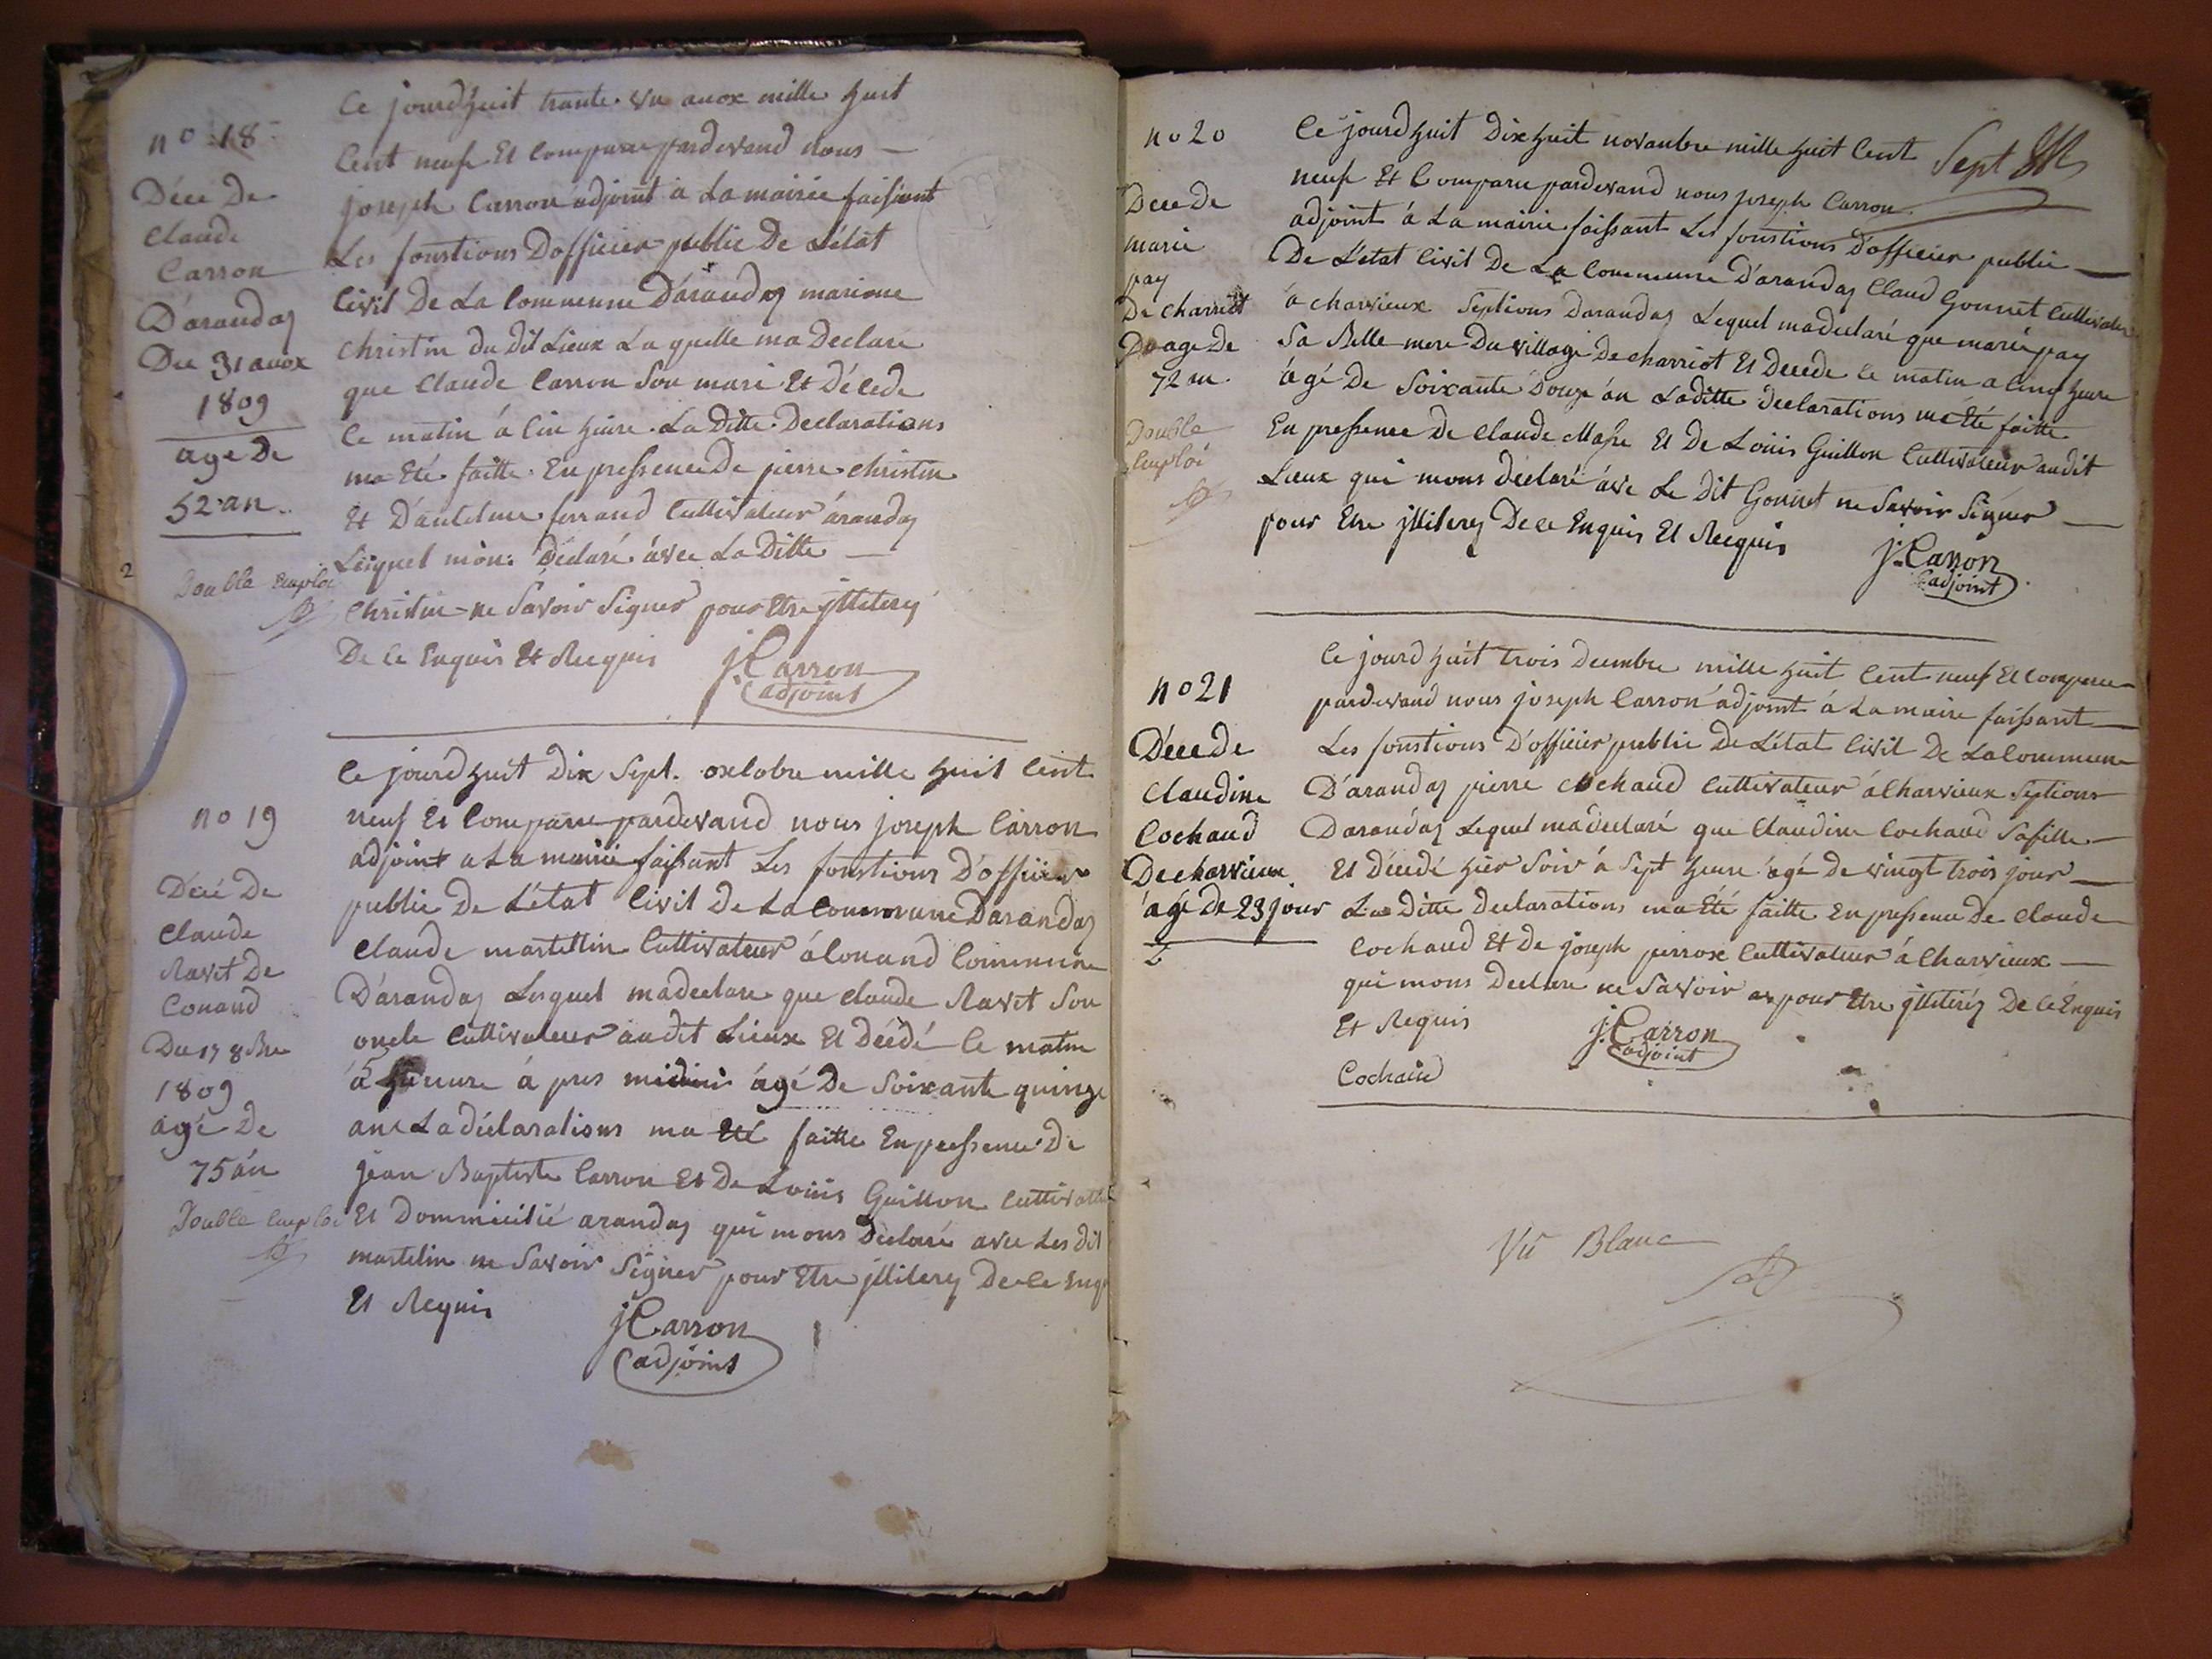 no 18
Décé De
Claude
Carron
D'arandas
Du 31 auox
1809
age De
52 an
Double emploi
Ce jourdhuit trante un auox mille huit
Cent neufe Et Comparu pardevand nous —
joseph Carron adjoint à La mairie faissant
Les fonstions Dofficier public De L'état
Civil De La Commune D'arandas marione
Christin du Dit Lieux La quelle ma Declare
que Claude Carron Son mari Et Décede
Ce matin á Cin heure La Ditte Declarations
ma Eté faitte En pressence De pierre Christin
Et D'antelme ferrand Cultivateur árandas
Lesquel mon Déclaré ávec La Ditte —
Christin ne Savoir Signer pour Etre jlliterey
De Ce Enquis Et Recquis
J. Carron
adjoint
no 19
Décé De
Claude
Ravet De
Conand
Du 17 8bre
1809
agé De
75 an
Double emploi
Ce jourdhuit Dix Sept octobre mille huit Cent
neuf Et Comparu pardevand nous joseph Carron
adjoint a La mairie faissant Les fonstions D'officier
public De L'état Civil De La Commune Darandas
Claude martellin Cultivateur áConand Commune
D'arandas Lequel madeclare que Claude Ravet Son
oncle Cultivateur audit Lieux Et Décédé Ce matin
á heure á pres midi ágé De Soixante quinze
ans La déclarations ma Eté faitte En pressence De
jean Baptiste Carron Et De Louis Guillon Cultivateur
Et Dommicilié arandas qui mons Declaré avec Les dit
martelin ne Savoir Signer pour Etre jlliterey De Ce Enq
Et Requis
J. Carron
adjoint
no 20
Décé De
marie
pay
De Charriot
Du age De
72 an
Double
Emploi
Sept
Ce jourdhuit Dix huit novambre mille huit Cent
neufe Et Comparu pardevand nous joseph Carron
adjoint á La mairie faissant Les fonstions D'officier public —
De L'état Civil De La Commune D'arandas Claud Gonnet Cultivateur
á charvieux Septions Darandas Lequel madeclaré que marie pay
Sa Belle mere Du village De charriot Et Décédé Ce matin a Cinq heure
ágé De Soixante Douze án Laditte Declarations ma Eté faitte
En pressence De Claude Masse Et De Louis Guillon Cultivateur audit
Lieux qui mons Declaré ávec Le Dit Gonnet ne Savoir Signer —
pour Etre jlliterey De Ce Enquis Et Recquis
J. Carron
adjoint
no 21
Décé De
Claudine
Cochaud
De charvieux
ágé De 23 jour
Ce jourdhuit trois Decembre mille huit Cent neuf Et Comparu
pardevand nous joseph Carron adjoint á La mairie faissant —
Les fonstions D'officier public De L'état Civil De La Commune
D'arandas pierre Cochaud Cultivateur á Charvieux Septions
Darandas Lequel madeclaré que Claudine Cochaud Sa fille —
Et Décédé hier Soir á Sept heure ágé De vingt trois jour —
La Ditte Declarations ma Eté faitte En pressence De Claude
Cochaud Et De joseph perrox Cultivateur á Charvieux —
qui mons Declare ne Savoir pour Etre jlliteréy De Cé Enquis
Et Requis
J. Carron
adjoint
Cochaud
Vu Blanc